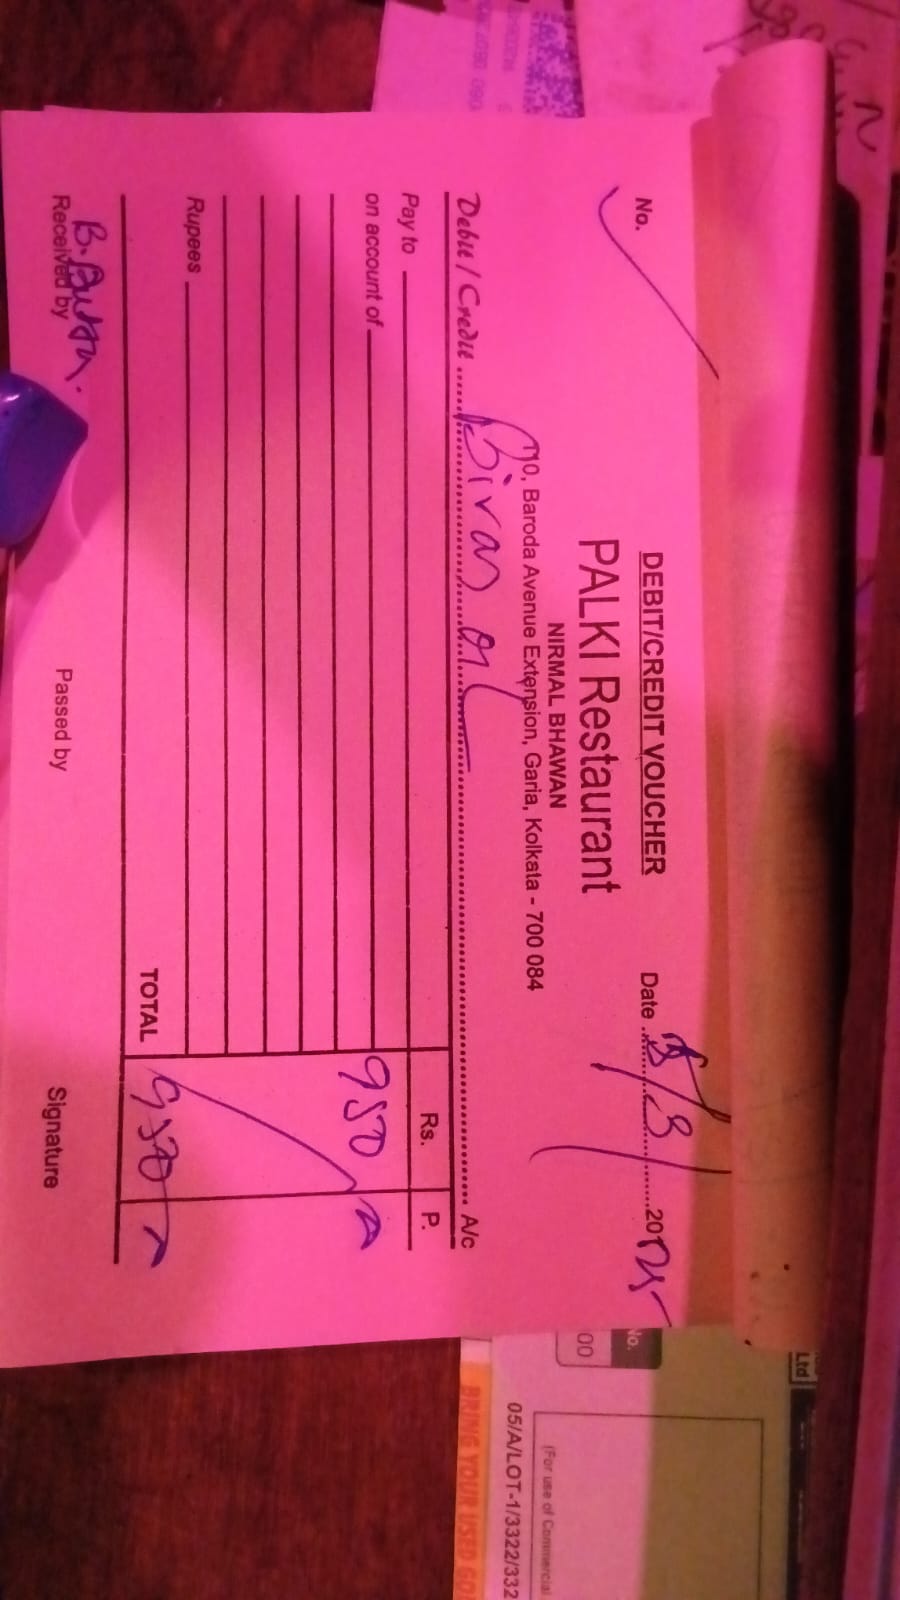 No.
DEBIT/CREDIT VOUCHER
Date 5/3/2025
PALKI Restaurant
NIRMAL BHAWAN
70, Baroda Avenue Extension, Garia, Kolkata - 700 084
Debit / Credit Biras A/c
Pay to
Rs. P.
on account of
950
Rupees
TOTAL 950
Received by
Passed by
Signature
No.
00
Ltd
(For use of Commercial
05/A/LOT-1/3322/332
BRING YOUR USED GO